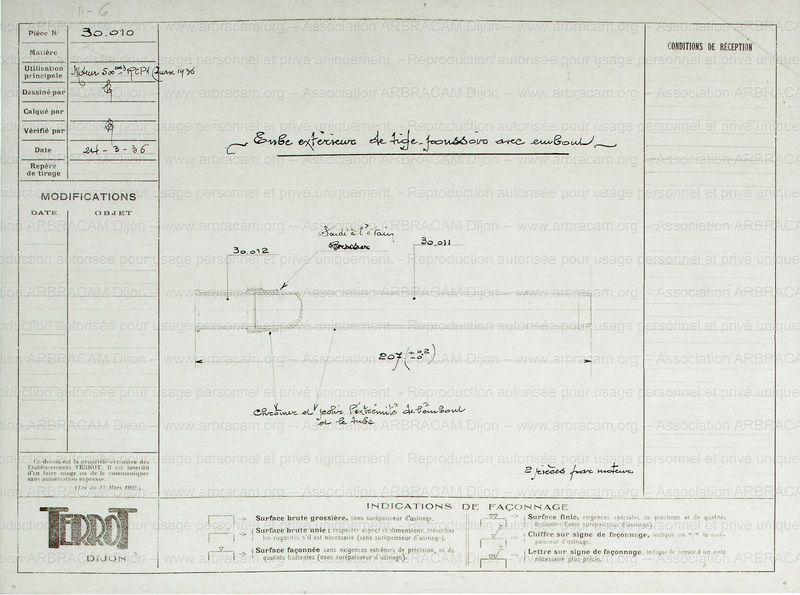 11-6
Pièce N° 30.010
Matière
Utilisation principale Moteur 500 cm3 RCPV Course 1936
Dessiné par
Calqué par
Vérifié par
Date 24-3-36
Repère de tirage
MODIFICATIONS
DATE OBJET
CONDITIONS DE RÉCEPTION
Tube extérieur de tige-poussoir avec embout
Soudé à l'étain
30.012
30.011
207 (+0,2 -0)
Chromer et polir l'extrémité de l'embout
et le tube
2 pièces par moteur
Ce dessin est la propriété exclusive des
Etablissements TERROT. Il est interdit
d'en faire usage ou de le communiquer
sans autorisation expresse.
(Loi du 11 Mars 1902.)
TERROT
DIJON
INDICATIONS DE FAÇONNAGE
Surface brute grossière, sans surépaisseur d'usinage.
Surface brute unie : respecter aspect et dimensions, retoucher
les rugosités s'il est nécessaire (sans surépaisseur d'usinage).
Surface façonnée sans exigences extrêmes de précision, ni de
qualités frottantes (avec surépaisseur d'usinage).
Surface finie, exigences spéciales de précision et de qualités
frottantes (avec surépaisseur d'usinage).
Chiffre sur signe de façonnage, indique en m/m la surépaisseur d'usinage.
Lettre sur signe de façonnage, indique le renvoi à une note
nécessaire plus précise.
Association ARBRACAM Dijon -- www.arbracam.org -- Association ARBRACAM Dijon
Reproduction autorisée pour usage personnel et privé uniquement.